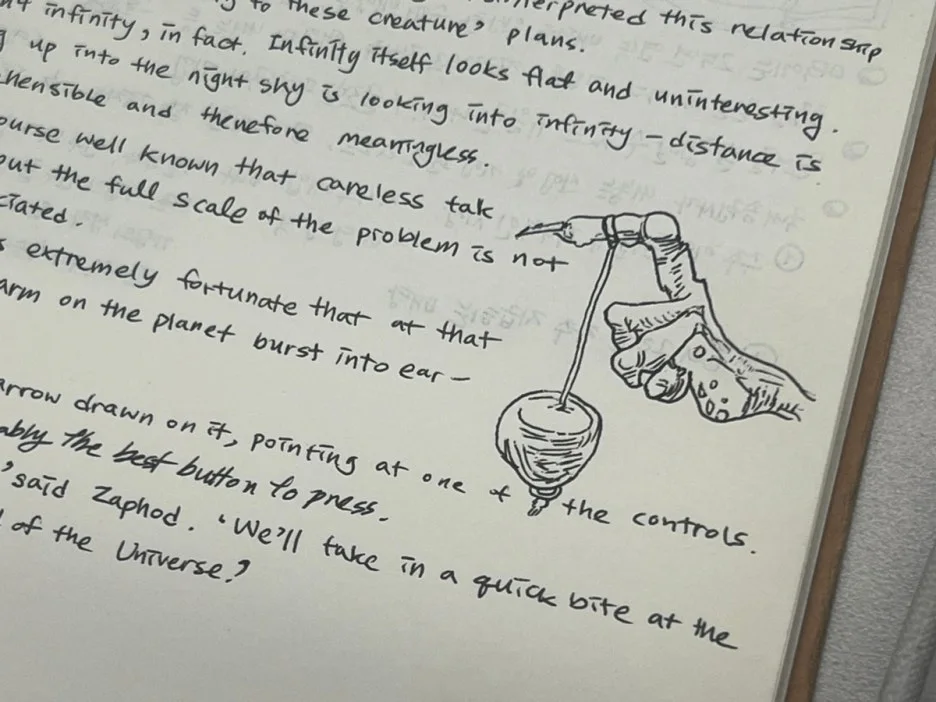 to these creature' plans. interpreted this relationship
infinity, in fact. Infinity itself looks flat and uninteresting.
up into the night sky is looking into infinity – distance is
hensible and therefore meaningless.
ourse well known that careless talk
out the full scale of the problem is not
ciated.
s extremely fortunate that at that
arm on the planet burst into ear –
arrow drawn on it, pointing at one of the controls.
ably the best button to press.
' said Zaphod. 'We'll take in a quick bite at the
of the Universe?